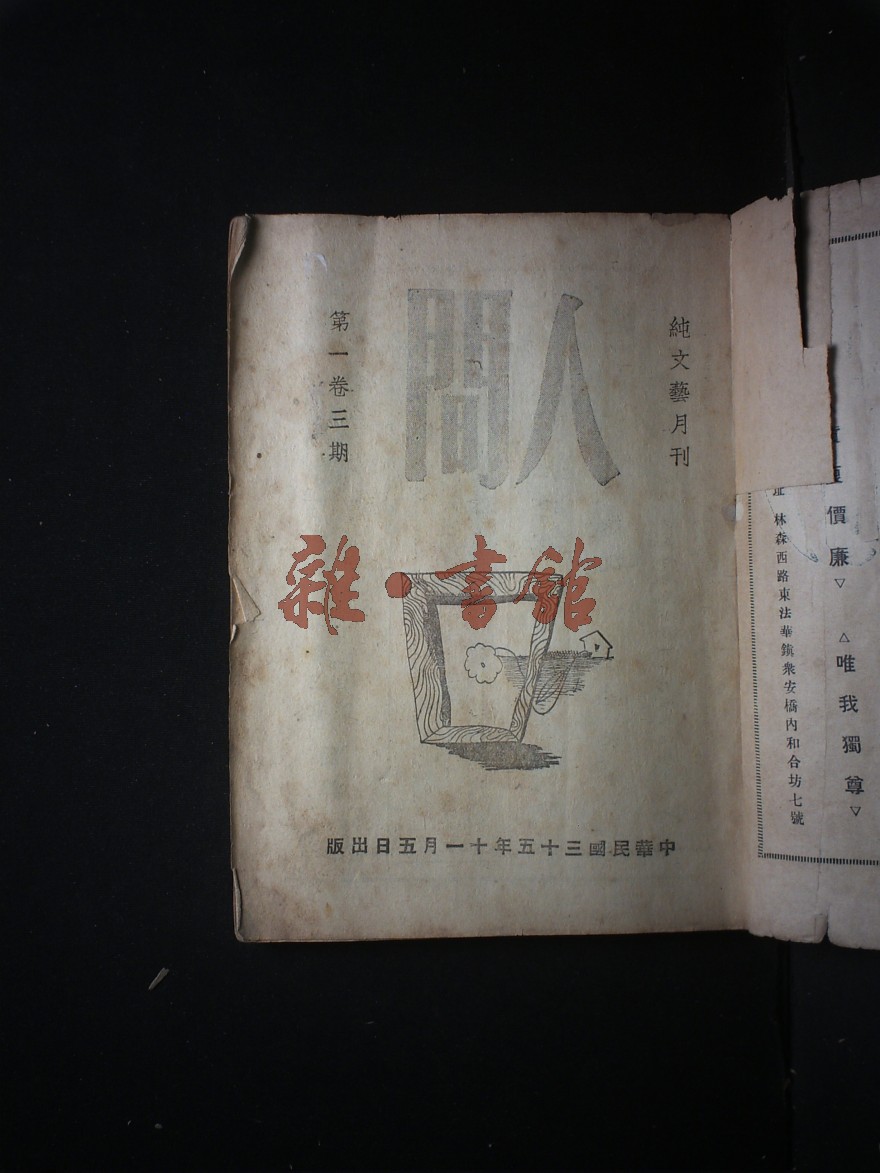 純文藝月刊
人間
第一卷三期
雜·書館
中華民國三十五年十一月五日出版
價廉▽ △唯我獨尊▽
林森西路東法華鎮衆安橋內和合坊七號